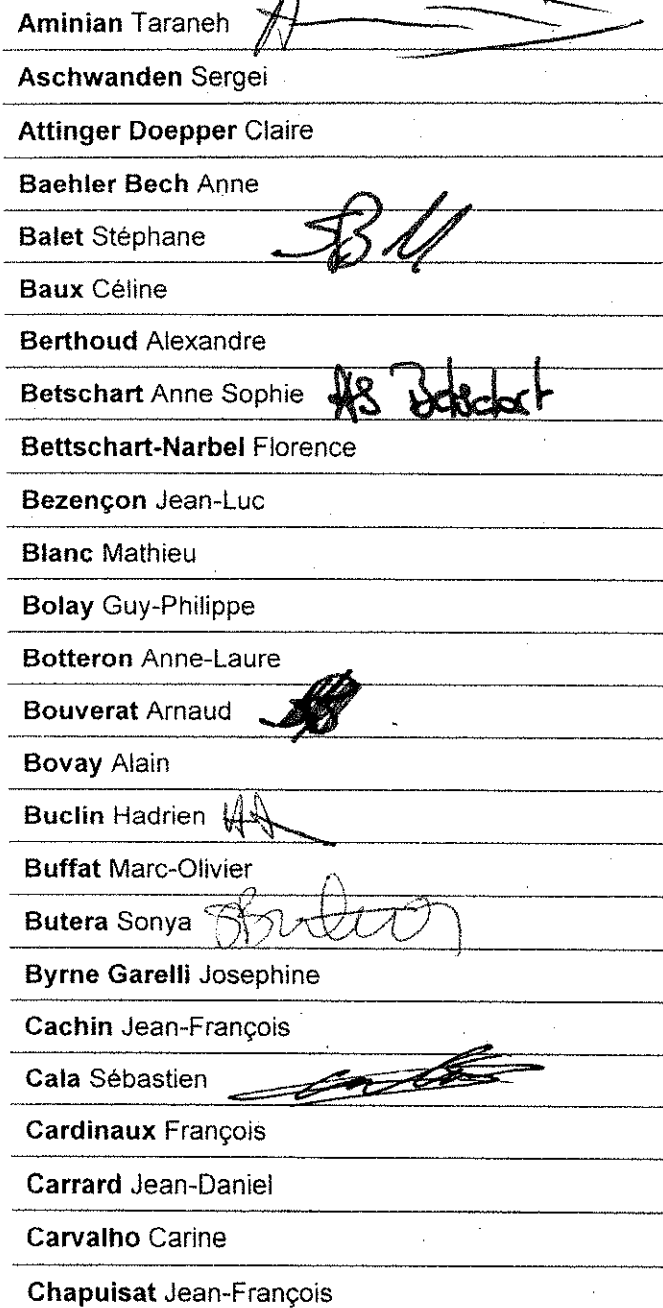 Aminian Taraneh
Aschwanden Sergei
Attinger Doepper Claire
Baehler Bech Anne
Balet Stéphane
Baux Céline
Berthoud Alexandre
Betschart Anne Sophie AS Betschart
Bettschart-Narbel Florence
Bezençon Jean-Luc
Blanc Mathieu
Bolay Guy-Philippe
Botteron Anne-Laure
Bouverat Arnaud
Bovay Alain
Buclin Hadrien
Buffat Marc-Olivier
Butera Sonya SButera
Byrne Garelli Josephine
Cachin Jean-François
Cala Sébastien
Cardinaux François
Carrard Jean-Daniel
Carvalho Carine
Chapuisat Jean-François